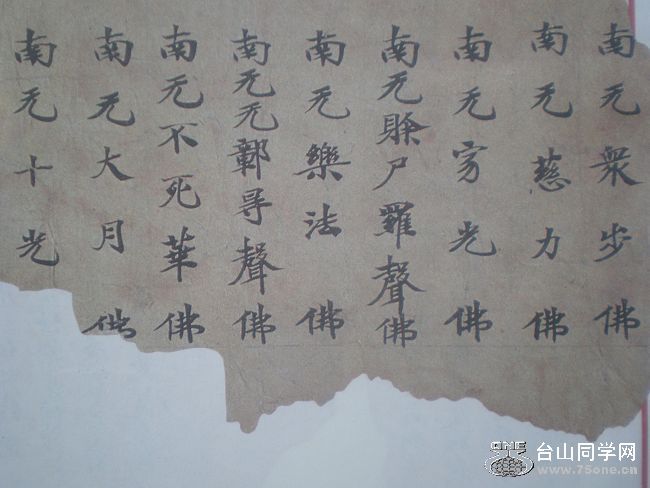 南无衆步佛
南无慈力佛
南无光佛
南无賖尸羅聲佛
南无樂法佛
南无无鄣㝵聲佛
南无不死華佛
南无大月佛
南无十光
ONE
台山同学网
www.75one.cn